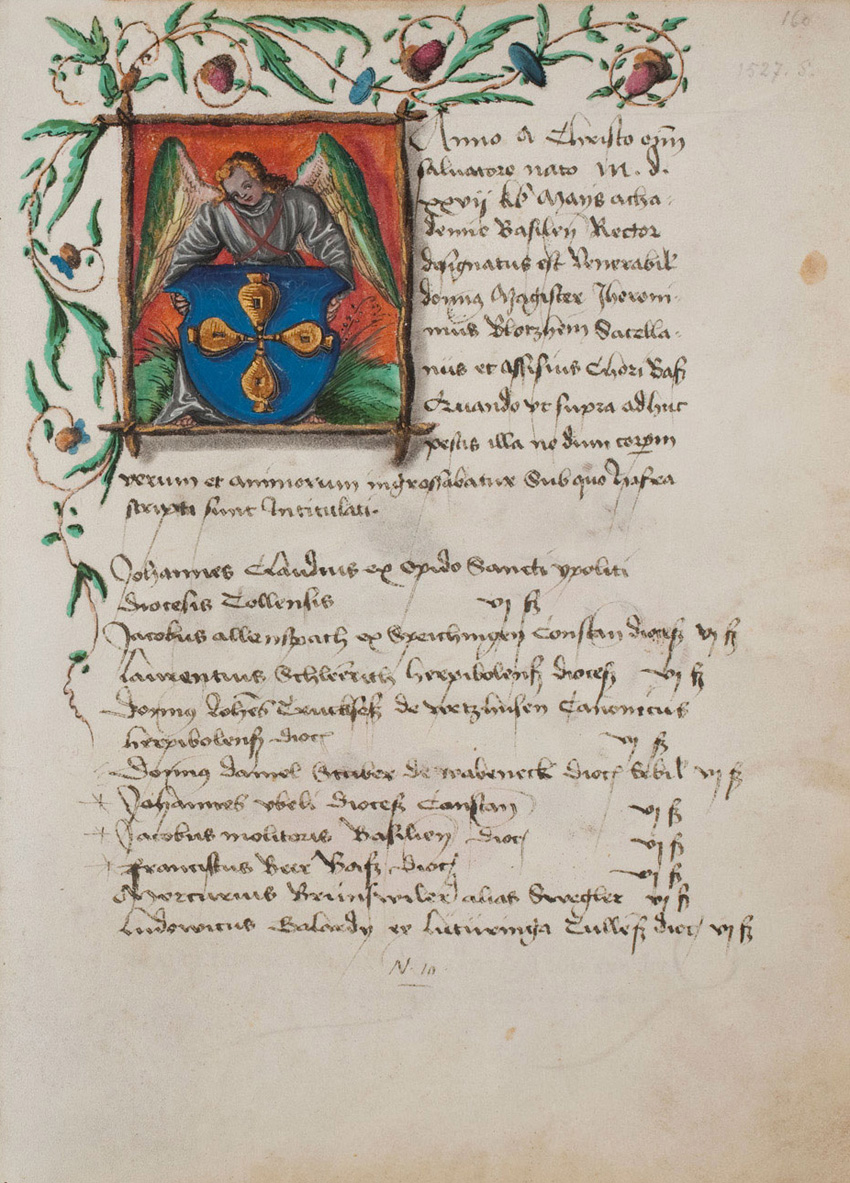 160
1527. S.
Anno A Christo opti
salvatore nato M. d.
xxvij kl Maijs acha-
demie Basilen Rector
designatus est Venerabil
domin9 Magister Iheroni-
mus Blotzhem Sacella-
nus et Assisius Chori Bas
Quando vt supra adhuc
pestis illa no dum corpm
verum et animorum ingrossabatur Sub quo
scripti sunt Intitulati.
Johannes Claudius ex opido Sancti ypoliti
diocesis Tollensis vj ß
Jacobus allenspach ex Speichingen Constan dioces vj ß
Laurentius herpibolens dioces vj ß
Domin9 Johes Truchses de wetzhusen Canonicus
herpibolens dioc
vj ß
Domin9 daniel Stuber de wabeneck dioc vj ß
+ Johannes vbeli dioces Constan vj ß
+ Jacobus molitoris Basilien dioc vj ß
+ franciscus Beer Bas dioc vj ß
Mercurius Brunswiler alias Swegler vj ß
Ludovicus ex Tulles dioc vj ß
N. 10